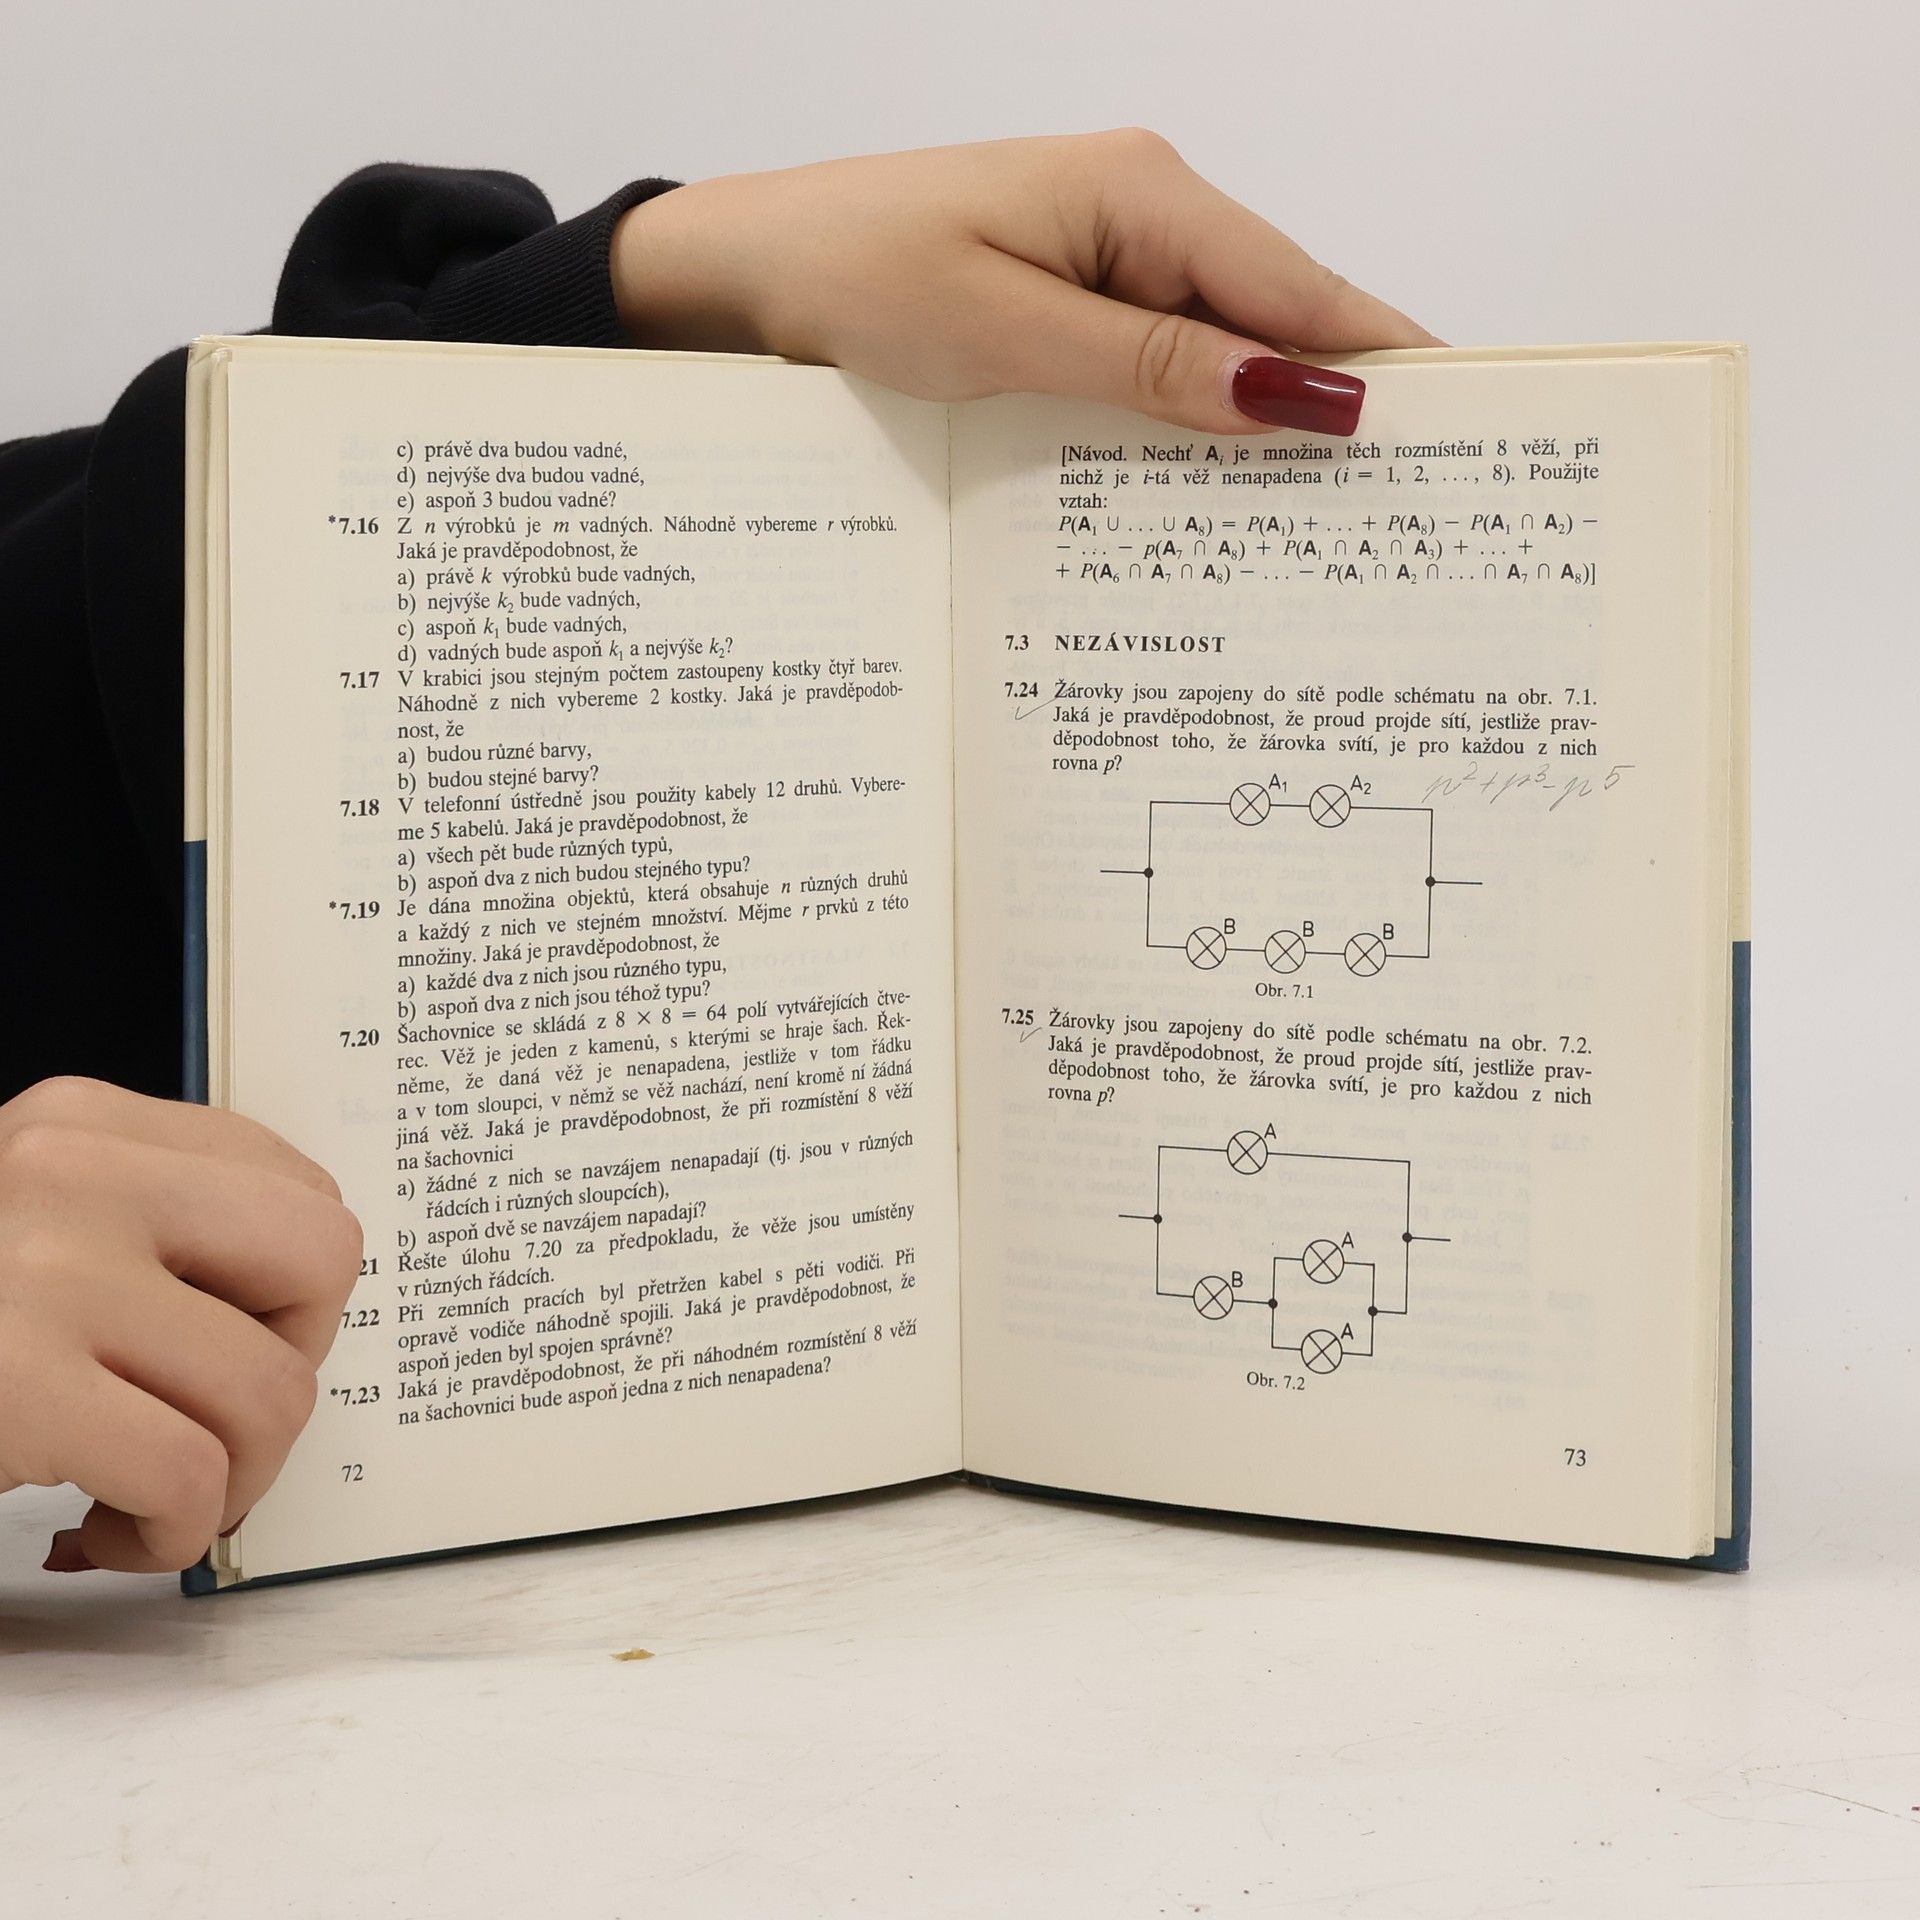 c) právě dva budou vadné,
d) nejvýše dva budou vadné,
e) aspoň 3 budou vadné?
*7.16 Z n výrobků je m vadných. Náhodně vybereme r výrobků.
Jaká je pravděpodobnost, že
a) právě k výrobků bude vadných,
b) nejvýše k₂ bude vadných,
c) aspoň k₁ bude vadných,
d) vadných bude aspoň k₁ a nejvýše k₂?
7.17 V krabici jsou stejným počtem zastoupeny kostky čtyř barev.
Náhodně z nich vybereme 2 kostky. Jaká je pravděpodob-
nost, že
a) budou různé barvy,
b) budou stejné barvy?
7.18 V telefonní ústředně jsou použity kabely 12 druhů. Vybere-
me 5 kabelů. Jaká je pravděpodobnost, že
a) všech pět bude různých typů,
b) aspoň dva z nich budou stejného typu?
*7.19 Je dána množina objektů, která obsahuje n různých druhů
a každý z nich ve stejném množství. Mějme r prvků z této
množiny. Jaká je pravděpodobnost, že
a) každé dva z nich jsou různého typu,
b) aspoň dva z nich jsou téhož typu?
7.20 Šachovnice se skládá z 8 × 8 = 64 polí vytvářejících čtve-
rec. Věž je jeden z kamenů, s kterými se hraje šach. Řek-
něme, že daná věž je nenapadena, jestliže v tom řádku
a v tom sloupci, v němž se věž nachází, není kromě ní žádná
jiná věž. Jaká je pravděpodobnost, že při rozmístění 8 věží
na šachovnici
a) žádné z nich se navzájem nenapadají (tj. jsou v různých
řádcích i různých sloupcích),
b) aspoň dvě se navzájem napadají?
21 Řešte úlohu 7.20 za předpokladu, že věže jsou umístěny
v různých řádcích.
7.22 Při zemních pracích byl přetržen kabel s pěti vodiči. Při
opravě vodiče náhodně spojili. Jaká je pravděpodobnost, že
aspoň jeden byl spojen správně?
*7.23 Jaká je pravděpodobnost, že při náhodném rozmístění 8 věží
na šachovnici bude aspoň jedna z nich nenapadena?
72
[Návod. Nechť Aᵢ je množina těch rozmístění 8 věží, při
nichž je i-tá věž nenapadena (i = 1, 2, ..., 8). Použijte
vztah:
P(A₁ ∪ ... ∪ A₈) = P(A₁) + ... + P(A₈) − P(A₁ ∩ A₂) −
− ... − p(A₇ ∩ A₈) + P(A₁ ∩ A₂ ∩ A₃) + ... +
+ P(A₆ ∩ A₇ ∩ A₈) − ... − P(A₁ ∩ A₂ ∩ ... ∩ A₇ ∩ A₈)]
7.3 NEZÁVISLOST
7.24 Žárovky jsou zapojeny do sítě podle schématu na obr. 7.1.
Jaká je pravděpodobnost, že proud projde sítí, jestliže prav-
děpodobnost toho, že žárovka svítí, je pro každou z nich
rovna p?
p² + p³ − p⁵
A₁ A₂
B B B
Obr. 7.1
7.25 Žárovky jsou zapojeny do sítě podle schématu na obr. 7.2.
Jaká je pravděpodobnost, že proud projde sítí, jestliže prav-
děpodobnost toho, že žárovka svítí, je pro každou z nich
rovna p?
A
A
B
A
Obr. 7.2
73